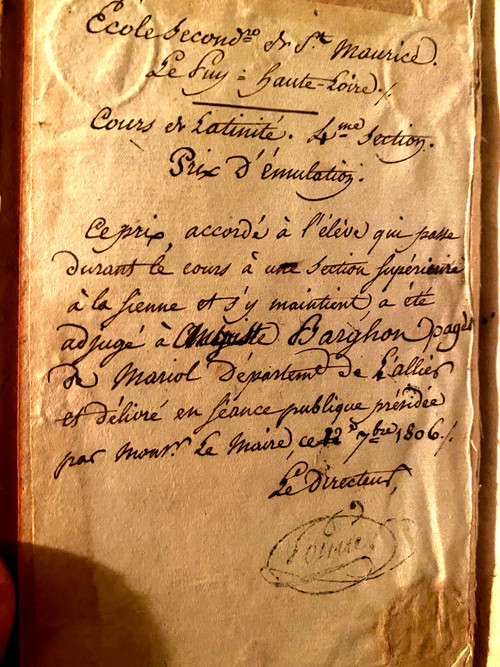 École Second.re de S.t Maurice.
Le Puy = Haute-Loire./.
Cours de Latinité. 4.me Section.
Prix D'émulation.
Ce prix, accordé à l'élève qui passe
durant le cours à une section supérieure
à la sienne et s'y maintient, a été
adjugé à Auguste Barghon, pagès
de Mariol Départem.t de L'allier
et délivré en séance publique présidée
par Mons.r Le Maire, ce 7.bre 1806./.
Le Directeur,